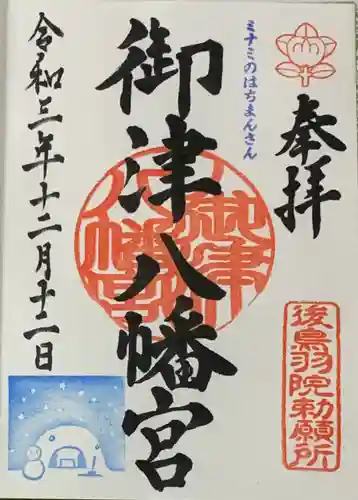 奉拝
後鳥羽院勅願所
ミナミのはちまんさん
御津八幡宮
御津八幡宮
令和三年十二月十二日